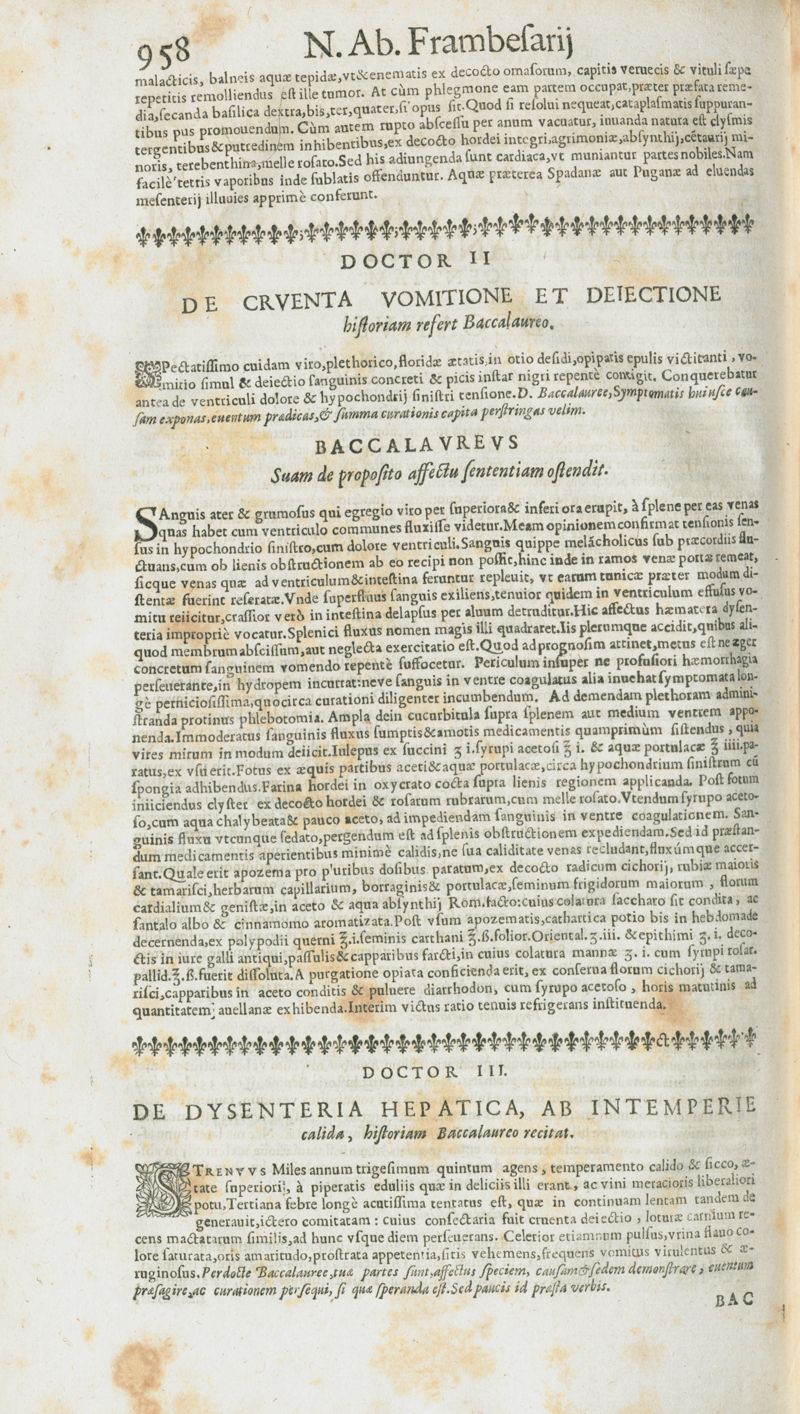 958 N. Ab. Frambeſarij
malacticis, balneis aquæ tepidæ,vt&enematis ex decocto omaſorum, capitis veruecis & vituli ſæpe
repetitis remolliendus eſt ille tumor. At cùm phlegmone eam partem occupat,præter præfata reme-
dia,ſecanda baſilica dextra,bis,ter,quater,ſi opus ſit.Quod ſi reſolui nequeat,cataplaſmatis ſuppuran-
tibus pus promouendum. Cùm autem rupto abſceſſu per anum vacuatur, iuuanda natura eſt clyſmis
tergentibus&putredinem inhibentibus,ex decocto hordei integri,agrimoniæ,abſynthij,cẽtaurij mi-
noris, terebenthina,melle roſato.Sed his adiungenda ſunt cardiaca,vt muniantur partes nobiles.Nam
facilè tetris vaporibus inde ſublatis offenduntur. Aquæ præterea Spadanæ aut Puganæ ad eluendas
meſenterij illuuies apprimè conferunt.
DOCTOR II
DE CRVENTA VOMITIONE ET DEIECTIONE
hiſtoriam refert Baccalaureo.
SPectatiſſimo cuidam viro,plethorico,floridæ ætatis,in otio deſidi,opiparis epulis victitanti, vo-
mitio ſimul & deiectio ſanguinis concreti & picis inſtar nigri repentè contigit. Conquerebatur
antea de ventriculi dolore & hypochondrij ſiniſtri tenſione.D. Baccalauree,Symptomatis huiuſce cau-
ſam exponas,euentum prædicas,& ſumma curationis capita perſtringas velim.
BACCALAVREVS
Suam de propoſito affectu ſententiam oſtendit.
SAnguis ater & grumoſus qui egregio viro per ſuperiora& inferiora erupit, à ſplene per eas venas
quas habet cum ventriculo communes fluxiſſe videtur.Meam opinionem confirmat tenſionis ſen-
ſus in hypochondrio ſiniſtro,cum dolore ventriculi.Sanguis quippe melãcholicus ſub præcordiis flu-
ctuans,cum ob lienis obſtructionem ab eo recipi non poſſit,hinc inde in ramos venæ portæ remeat,
ſicque venas quæ ad ventriculum&inteſtina feruntur repleuit, vt earum tunicæ præter modum di-
ſtentæ fuerint reſeratæ.Vnde ſuperfluus ſanguis exiliens,tenuior quidem in ventriculum effuſus vo-
mitu reiicitur,craſſior verò in inteſtina delapſus per aluum detruditur.Hic affectus hæmatera dyſen-
teria impropriè vocatur.Splenici fluxus nomen magis illi quadraret.Iis plerumque accidit,quibus ali-
quod membrum abſciſſum,aut neglecta exercitatio eſt.Quod ad prognoſim attinet,metus eſt ne æger
concretum ſanguinem vomendo repentè ſuffocetur. Periculum inſuper ne profuſiori hæmorrhagia
perſeuerante,in hydropem incurrat:neve ſanguis in ventre coagulatus alia inuehat ſymptomata lon-
gè pernicioſiſſima,quocirca curationi diligenter incumbendum. Ad demendam plethoram admini-
ſtranda protinus phlebotomia. Ampla dein cucurbitula ſupra ſplenem aut medium ventrem appo-
nenda.Immoderatus ſanguinis fluxus ſumptis&amotis medicamentis quamprimùm ſiſtendus, quia
vires mirum in modum deiicit.Iulepus ex ſuccini ʒ i.ſyrupi acetoſi ℥ i. & aquæ portulacæ ℥ iiii.pa-
ratus,ex vſu erit.Fotus ex æquis partibus aceti&aquæ portulacæ,circa hypochondrium ſiniſtrum cũ
ſpongia adhibendus.Farina hordei in oxycrato cocta ſupra lienis regionem applicanda. Poſt fotum
iniiciendus clyſter ex decocto hordei & roſarum rubrarum,cum melle roſato.Vtendum ſyrupo aceto-
ſo,cum aqua chalybeata& pauco aceto,ad impediendam ſanguinis in ventre coagulationem. San-
guinis fluxu vtcunque ſedato,pergendum eſt ad ſplenis obſtructionem expediendam.Sed id præſtan-
dum medicamentis aperientibus minimè calidis,ne ſua caliditate venas recludant,fluxúmque accer-
ſant.Quale erit apozema pro pluribus doſibus paratum,ex decocto radicum cichorij, rubiæ maioris
& tamariſci,herbarum capillarium, borraginis& portulacæ,ſeminum frigidorum maiorum , florum
cardialium& geniſtæ,in aceto & aqua abſynthij Rom.facto:cuius colatura ſaccharo ſit condita, ac
ſantalo albo & cinnamomo aromatizata.Poſt vſum apozematis,cathartica potio bis in hebdomade
decernenda,ex polypodii querni ℥.i.ſeminis carthami ℥.ß.folior.Oriental.ʒ.iii. &epithimi ʒ. i. deco-
ctis in iure galli antiqui,paſſulis&capparibus farcti,in cuius colatura mannæ ʒ. i. cum ſyrupi roſat.
pallid.℥.ß.fuerit diſſoluta.A purgatione opiata conficienda erit, ex conſerua florum cichorij & tama-
riſci,capparibus in aceto conditis & puluere diarrhodon, cum ſyrupo acetoſo , horis matutinis ad
quantitatem auellanæ exhibenda.Interim victus ratio tenuis refrigerans inſtituenda.
DOCTOR III.
DE DYSENTERIA HEPATICA, AB INTEMPERIE
calida, hiſtoriam Baccalaureo recitat.
STRENVVS Miles annum trigeſimum quintum agens, temperamento calido & ſicco, æ-
tate ſuperiori, à piperatis eduliis quæ in deliciis illi erant, ac vini meracioris liberaliori
potu,Tertiana febre longè acutiſſima tentatus eſt, quæ in continuam lentam tandem de
generauit,ictero comitatam : cuius conſectaria fuit cruenta deiectio , loturæ carnium re-
cens mactatarum ſimilis,ad hunc vſque diem perſeuerans. Celerior etiamnum pulſus,vrina flauo co-
lore ſaturata,oris amaritudo,proſtrata appetentia,ſitis vehemens,frequens vomitus virulentus & æ-
ruginoſus.Perdocte Baccalauree,tuæ partes ſunt,affectus ſpeciem, cauſam&ſedem demonſtrare, euentum
præſagire,ac curationem perſequi, ſi qua ſperanda eſt.Sed paucis id præſta verbis.
BAC